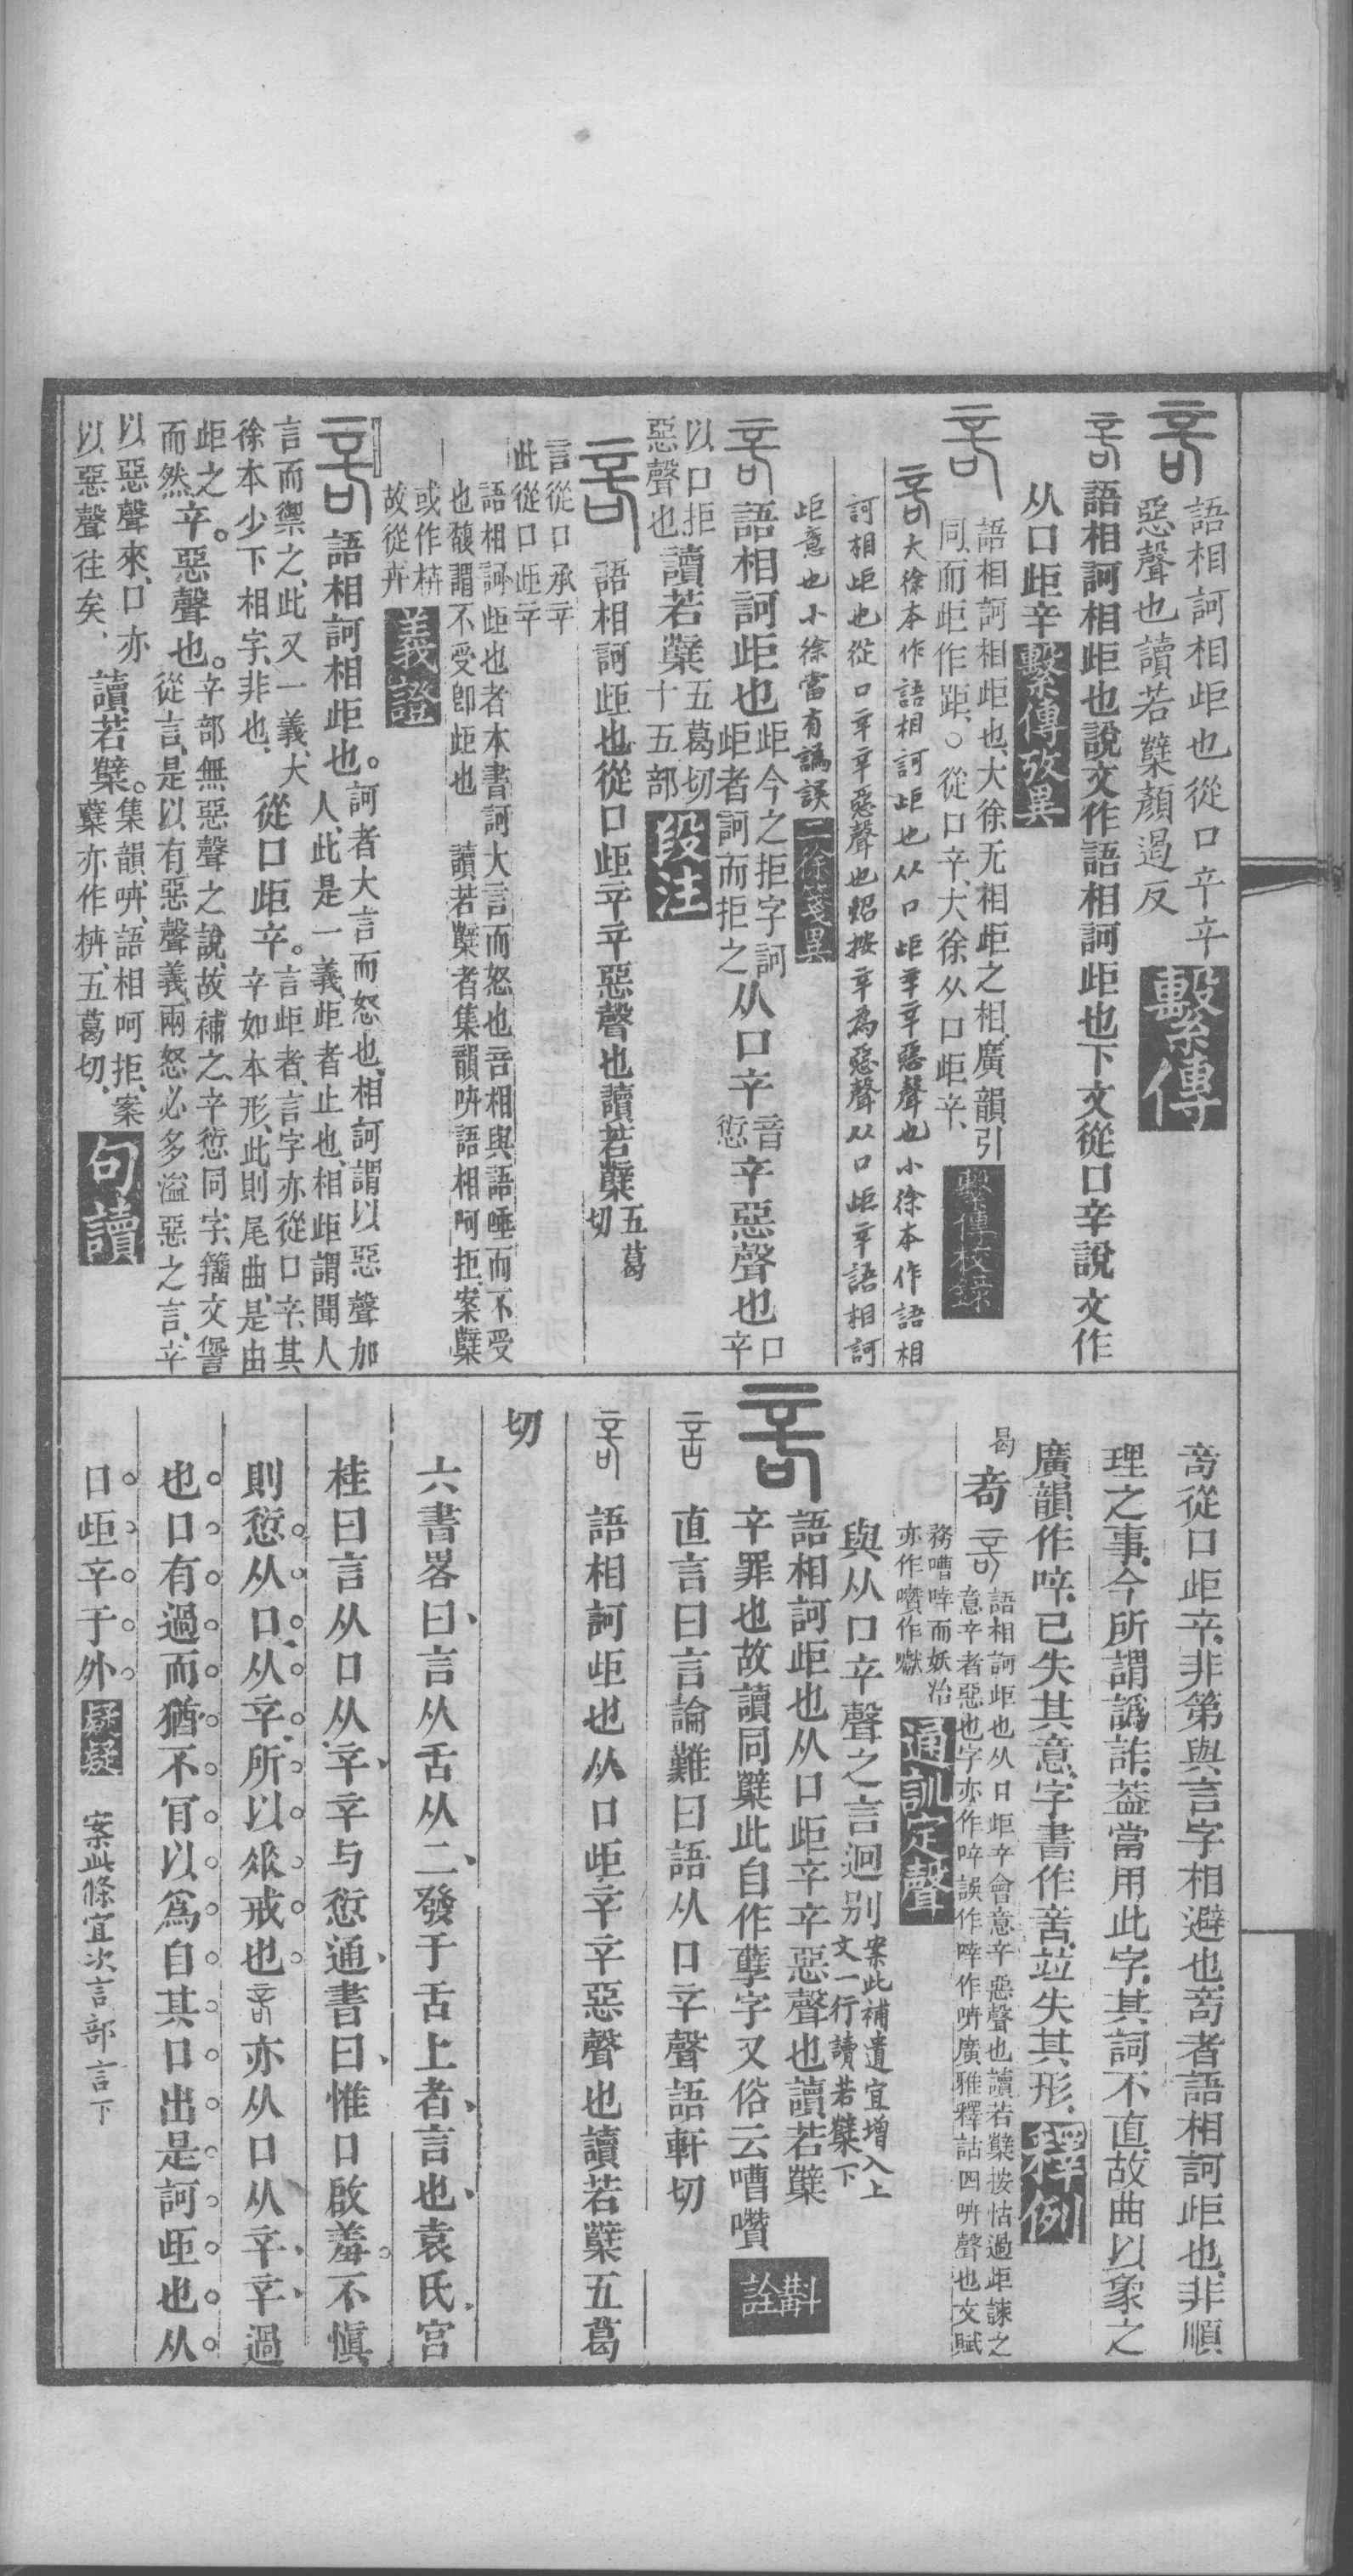 語相訶相歫也從口䇂䇂
惡聲也讀若櫱顏過反
繫傳
語相訶相歫也說文作語相訶歫也下文從口䇂說文作
从口歫䇂
繫傳攷異
語相訶相歫也、大徐无相歫之相、廣韻引
同、而歫作距、○從口䇂、大徐从口歫䇂、
繫傳校錄
大徐本作語相訶歫也从口歫䇂䇂惡聲也小徐本作語相
訶相歫也從口䇂䇂惡聲也炤按䇂為惡聲从口歫䇂語相訶
歫意也小徐當有譌誤
二徐箋異
語相訶歫也
歫今之拒字訶
歫者訶而拒之
从口䇂
音
愆
䇂惡聲也
口
䇂
以口拒
惡聲也
讀若櫱
五葛切
十五部
段注
語相訶歫也從口歫䇂䇂惡聲也讀若櫱
五葛
切
言從口承䇂
此從口歫䇂
語相訶歫也者本書訶大言而怒也㖣相與語唾而不受
也馥謂不受卽歫也 讀若櫱者集韻㖕語相呵拒案櫱
或作㭒
故從卉
義證
語相訶相歫也。
訶者大言而怒也、相訶謂以惡聲加
人、此是一義、歫者止也、相歫謂聞人
言而禦之、此又一義、大
徐本少下相字、非也、
從口歫䇂。
言歫者、言字亦從口䇂、其
䇂如本形、此則尾曲、是由
歫之
而然、
䇂。惡聲也。
䇂部無惡聲之說、故補之、䇂愆同字、籒文諐
從言、是以有惡聲義、兩怒必多溢惡之言、䇂
以惡聲來、口亦
以惡聲往矣、
讀若櫱。
集韻、㖕、語相呵拒、案
櫱亦作㭒、五葛切、
句讀
䇂從口歫䇂、非第與言字相避也、䇂者語相訶歫也、非順
理之事、今所謂譌詐、葢當用此字、其詞不直、故曲以象之
廣韻作啐、已失其意、字書作㖕、竝失其形、
釋例
曷
語相訶歫也从口歫䇂會意䇂惡聲也讀若櫱按怙過歫諫之
意䇂者惡也字亦作啐誤作啐作㖕廣雅釋詁四㖕聲也文賦
務嘈啐而妖冶
亦作囋作囐
通訓定聲
與从口䇂聲之言迥别
案此補遺宜增入上
文一行讀若櫱下
語相訶歫也从口歫䇂䇂惡聲也讀若櫱
䇂罪也故讀同櫱此自作孽字又俗云嘈囋
斠詮
直言曰言論難曰語从口䇂聲語軒切
語相訶歫也从口歫䇂䇂惡聲也讀若櫱五葛
切
六書畧曰言从舌从二發于舌上者言也袁氏宮
桂曰言从口从䇂䇂与愆通書曰惟口啟羞不愼
則愆从口从䇂所以㒸戒也亦从口从䇂䇂過
也口有過而猶不肎以爲自其口出是訶歫也从
口歫䇂于外
疑疑
案此條宜次言部言下